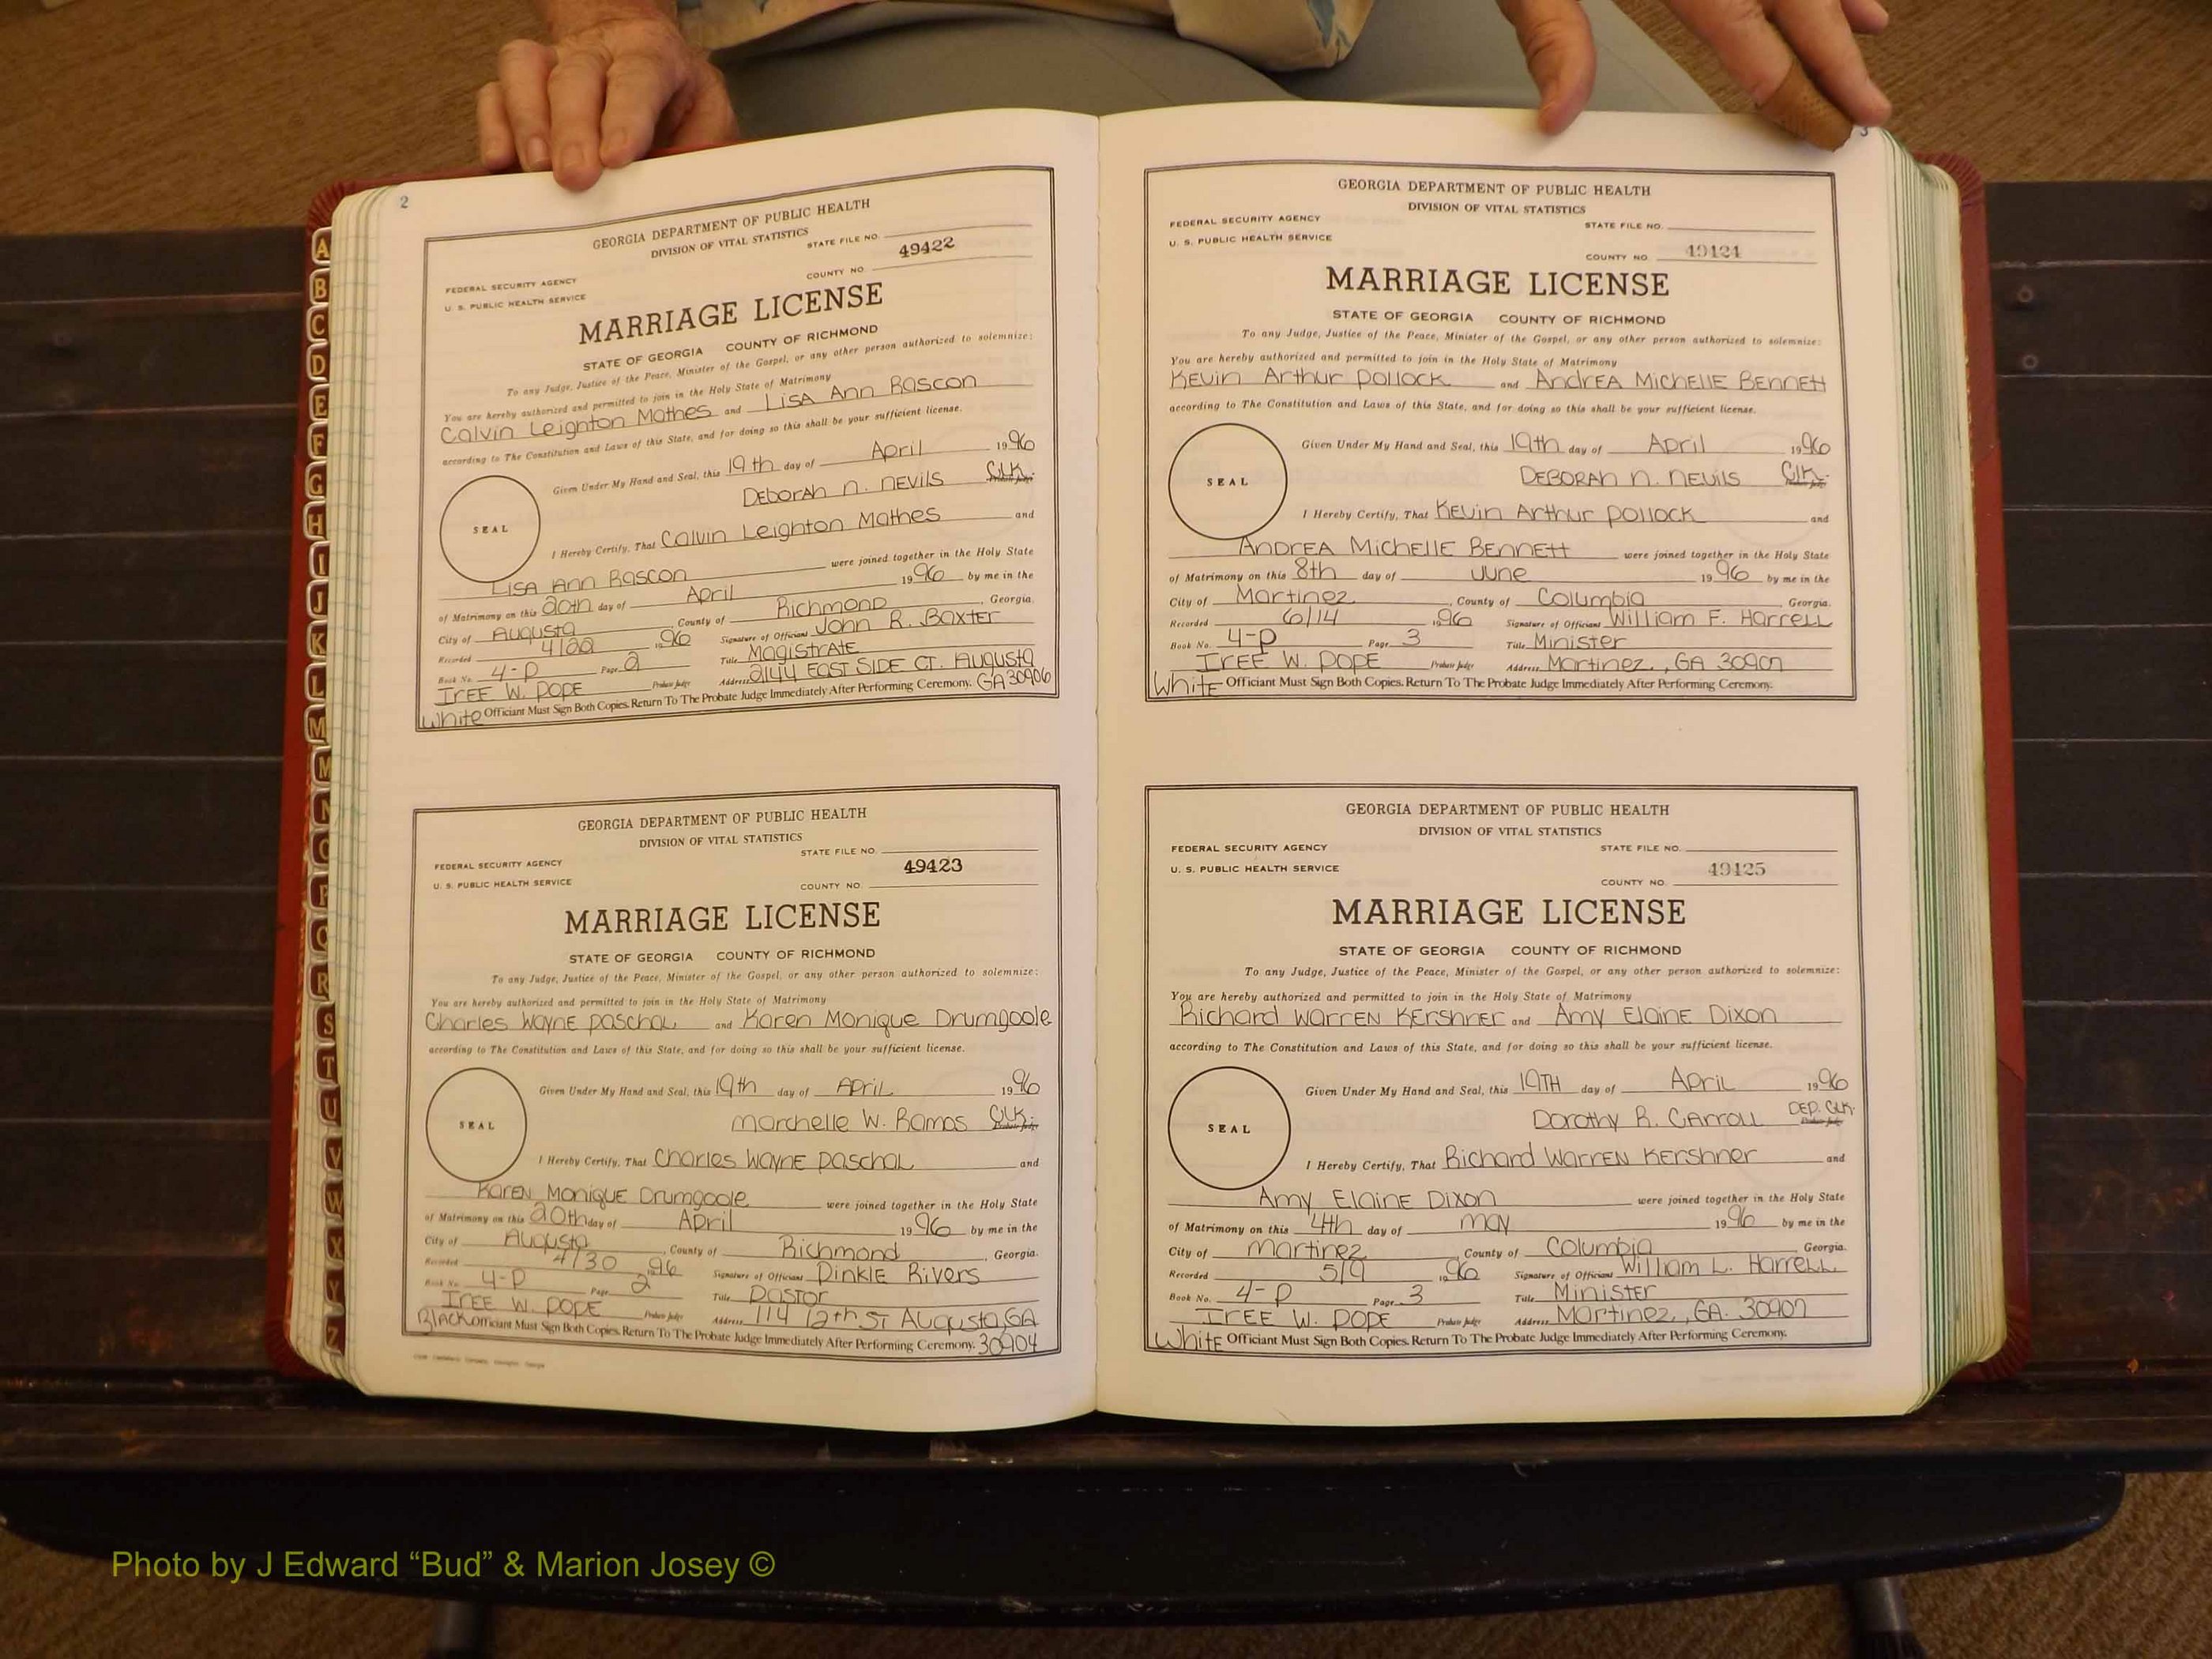 2
GEORGIA DEPARTMENT OF PUBLIC HEALTH
DIVISION OF VITAL STATISTICS
STATE FILE NO.
49422
FEDERAL SECURITY AGENCY
COUNTY NO.
U. S. PUBLIC HEALTH SERVICE
MARRIAGE LICENSE
STATE OF GEORGIA COUNTY OF RICHMOND
To any Judge, Justice of the Peace, Minister of the Gospel, or any other person authorized to solemnize:
You are hereby authorized and permitted to join in the Holy State of Matrimony
Calvin Leighton Mathes and Lisa Ann Rascon
according to The Constitution and Laws of this State, and for doing so this shall be your sufficient license.
Given Under My Hand and Seal, this 19th day of April 1996
Deborah N. Nevils Clk.
SEAL
I Hereby Certify, That Calvin Leighton Mathes and
Lisa Ann Rascon were joined together in the Holy State
of Matrimony on this 20th day of April 1996 by me in the
City of Augusta County of Richmond, Georgia.
Recorded 4/22 1996 Signature of Officiant John R. Baxter
Book No. 4-P Page 2 Title Magistrate
Iree W. Pope Probate Judge Address 2144 East Side Ct. Augusta
White Officiant Must Sign Both Copies. Return To The Probate Judge Immediately After Performing Ceremony. GA 30906
GEORGIA DEPARTMENT OF PUBLIC HEALTH
DIVISION OF VITAL STATISTICS
STATE FILE NO.
FEDERAL SECURITY AGENCY
49423
U. S. PUBLIC HEALTH SERVICE
COUNTY NO.
MARRIAGE LICENSE
STATE OF GEORGIA COUNTY OF RICHMOND
To any Judge, Justice of the Peace, Minister of the Gospel, or any other person authorized to solemnize:
You are hereby authorized and permitted to join in the Holy State of Matrimony
Charles Wayne Paschal and Karen Monique Drumgoole
according to The Constitution and Laws of this State, and for doing so this shall be your sufficient license.
Given Under My Hand and Seal, this 19th day of April 1996
Marchelle W. Ramos Clk.
SEAL
I Hereby Certify, That Charles Wayne Paschal and
Karen Monique Drumgoole were joined together in the Holy State
of Matrimony on this 20th day of April 1996 by me in the
City of Augusta, County of Richmond, Georgia.
Recorded 4/30 1996 Signature of Officiant Dinkle Rivers
Book No. 4-P Page 2 Title Pastor
Iree W. Pope Probate Judge Address 114 12th St Augusta, GA
Black Officiant Must Sign Both Copies. Return To The Probate Judge Immediately After Performing Ceremony. 30904
3
GEORGIA DEPARTMENT OF PUBLIC HEALTH
DIVISION OF VITAL STATISTICS
FEDERAL SECURITY AGENCY
STATE FILE NO.
U. S. PUBLIC HEALTH SERVICE
COUNTY NO. 49424
MARRIAGE LICENSE
STATE OF GEORGIA COUNTY OF RICHMOND
To any Judge, Justice of the Peace, Minister of the Gospel, or any other person authorized to solemnize:
You are hereby authorized and permitted to join in the Holy State of Matrimony
Kevin Arthur Pollock and Andrea Michelle Bennett
according to The Constitution and Laws of this State, and for doing so this shall be your sufficient license.
Given Under My Hand and Seal, this 19th day of April 1996
Deborah N. Nevils Clk.
SEAL
I Hereby Certify, That Kevin Arthur Pollock and
Andrea Michelle Bennett were joined together in the Holy State
of Matrimony on this 8th day of June 1996 by me in the
City of Martinez, County of Columbia Georgia.
Recorded 6/14 1996 Signature of Officiant William F. Harrell
Book No. 4-P Page 3 Title Minister
Iree W. Pope Probate Judge Address Martinez, GA 30907
White Officiant Must Sign Both Copies. Return To The Probate Judge Immediately After Performing Ceremony.
GEORGIA DEPARTMENT OF PUBLIC HEALTH
DIVISION OF VITAL STATISTICS
FEDERAL SECURITY AGENCY
STATE FILE NO.
U. S. PUBLIC HEALTH SERVICE
49425
COUNTY NO.
MARRIAGE LICENSE
STATE OF GEORGIA COUNTY OF RICHMOND
To any Judge, Justice of the Peace, Minister of the Gospel, or any other person authorized to solemnize:
You are hereby authorized and permitted to join in the Holy State of Matrimony
Richard Warren Kershner and Amy Elaine Dixon
according to The Constitution and Laws of this State, and for doing so this shall be your sufficient license.
Given Under My Hand and Seal, this 19TH day of April 1996
Dorothy R. Carroll Dep. Clk.
SEAL
I Hereby Certify, That Richard Warren Kershner and
Amy Elaine Dixon were joined together in the Holy State
of Matrimony on this 4th day of May 1996 by me in the
City of Martinez, County of Columbia Georgia.
Recorded 5/9 1996 Signature of Officiant William L. Harrell
Book No. 4-P Page 3 Title Minister
Iree W. Pope Probate Judge Address Martinez, GA. 30907
White Officiant Must Sign Both Copies. Return To The Probate Judge Immediately After Performing Ceremony.
A
B
C
D
E
F
G
H
I
J
K
L
M
M
N
O
P
Q
R
S
T
U
V
W
X
Y
Z
Photo by J Edward “Bud” & Marion Josey ©